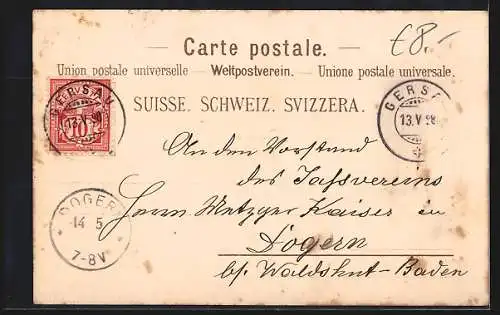 £8.-
— Carte postale. —
Union postale universelle – Weltpostverein. – Unione postale universale.
SUISSE. SCHWEIZ. SVIZZERA.
GERSAU
13.V.98
10
GERSAU
13.V.98
An den Vorstand
des Jassvereins
Herrn Metzger Kaiser in
Dogern
b/ Waldshut-Baden
DOGERN
14 5
7-8V